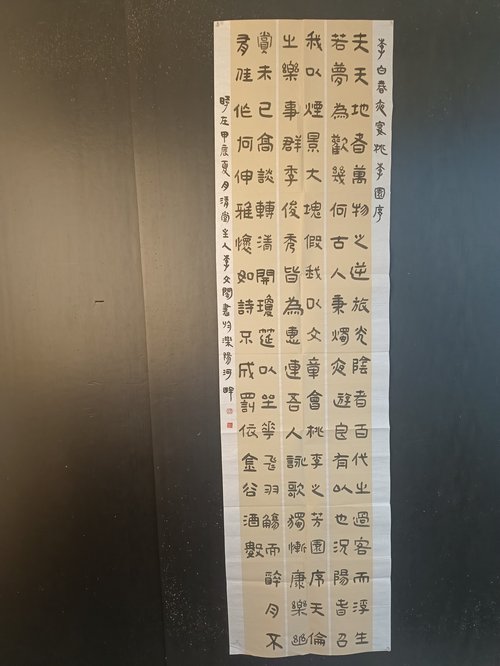 李白春夜宴桃李園序
夫天地者萬物之逆旅光陰者百代之過客而浮生
若夢為歡幾何古人秉燭夜遊良有以也況陽春召
我以煙景大塊假我以文章會桃李之芳園序天倫
之樂事群季俊秀皆為惠連吾人詠歌獨慚康樂幽
賞未已高談轉清開瓊筵以坐花飛羽觴而醉月不
有佳作何伸雅懷如詩不成罰依金谷酒數
時在甲辰夏月清堂主人李文閣書於陽河畔